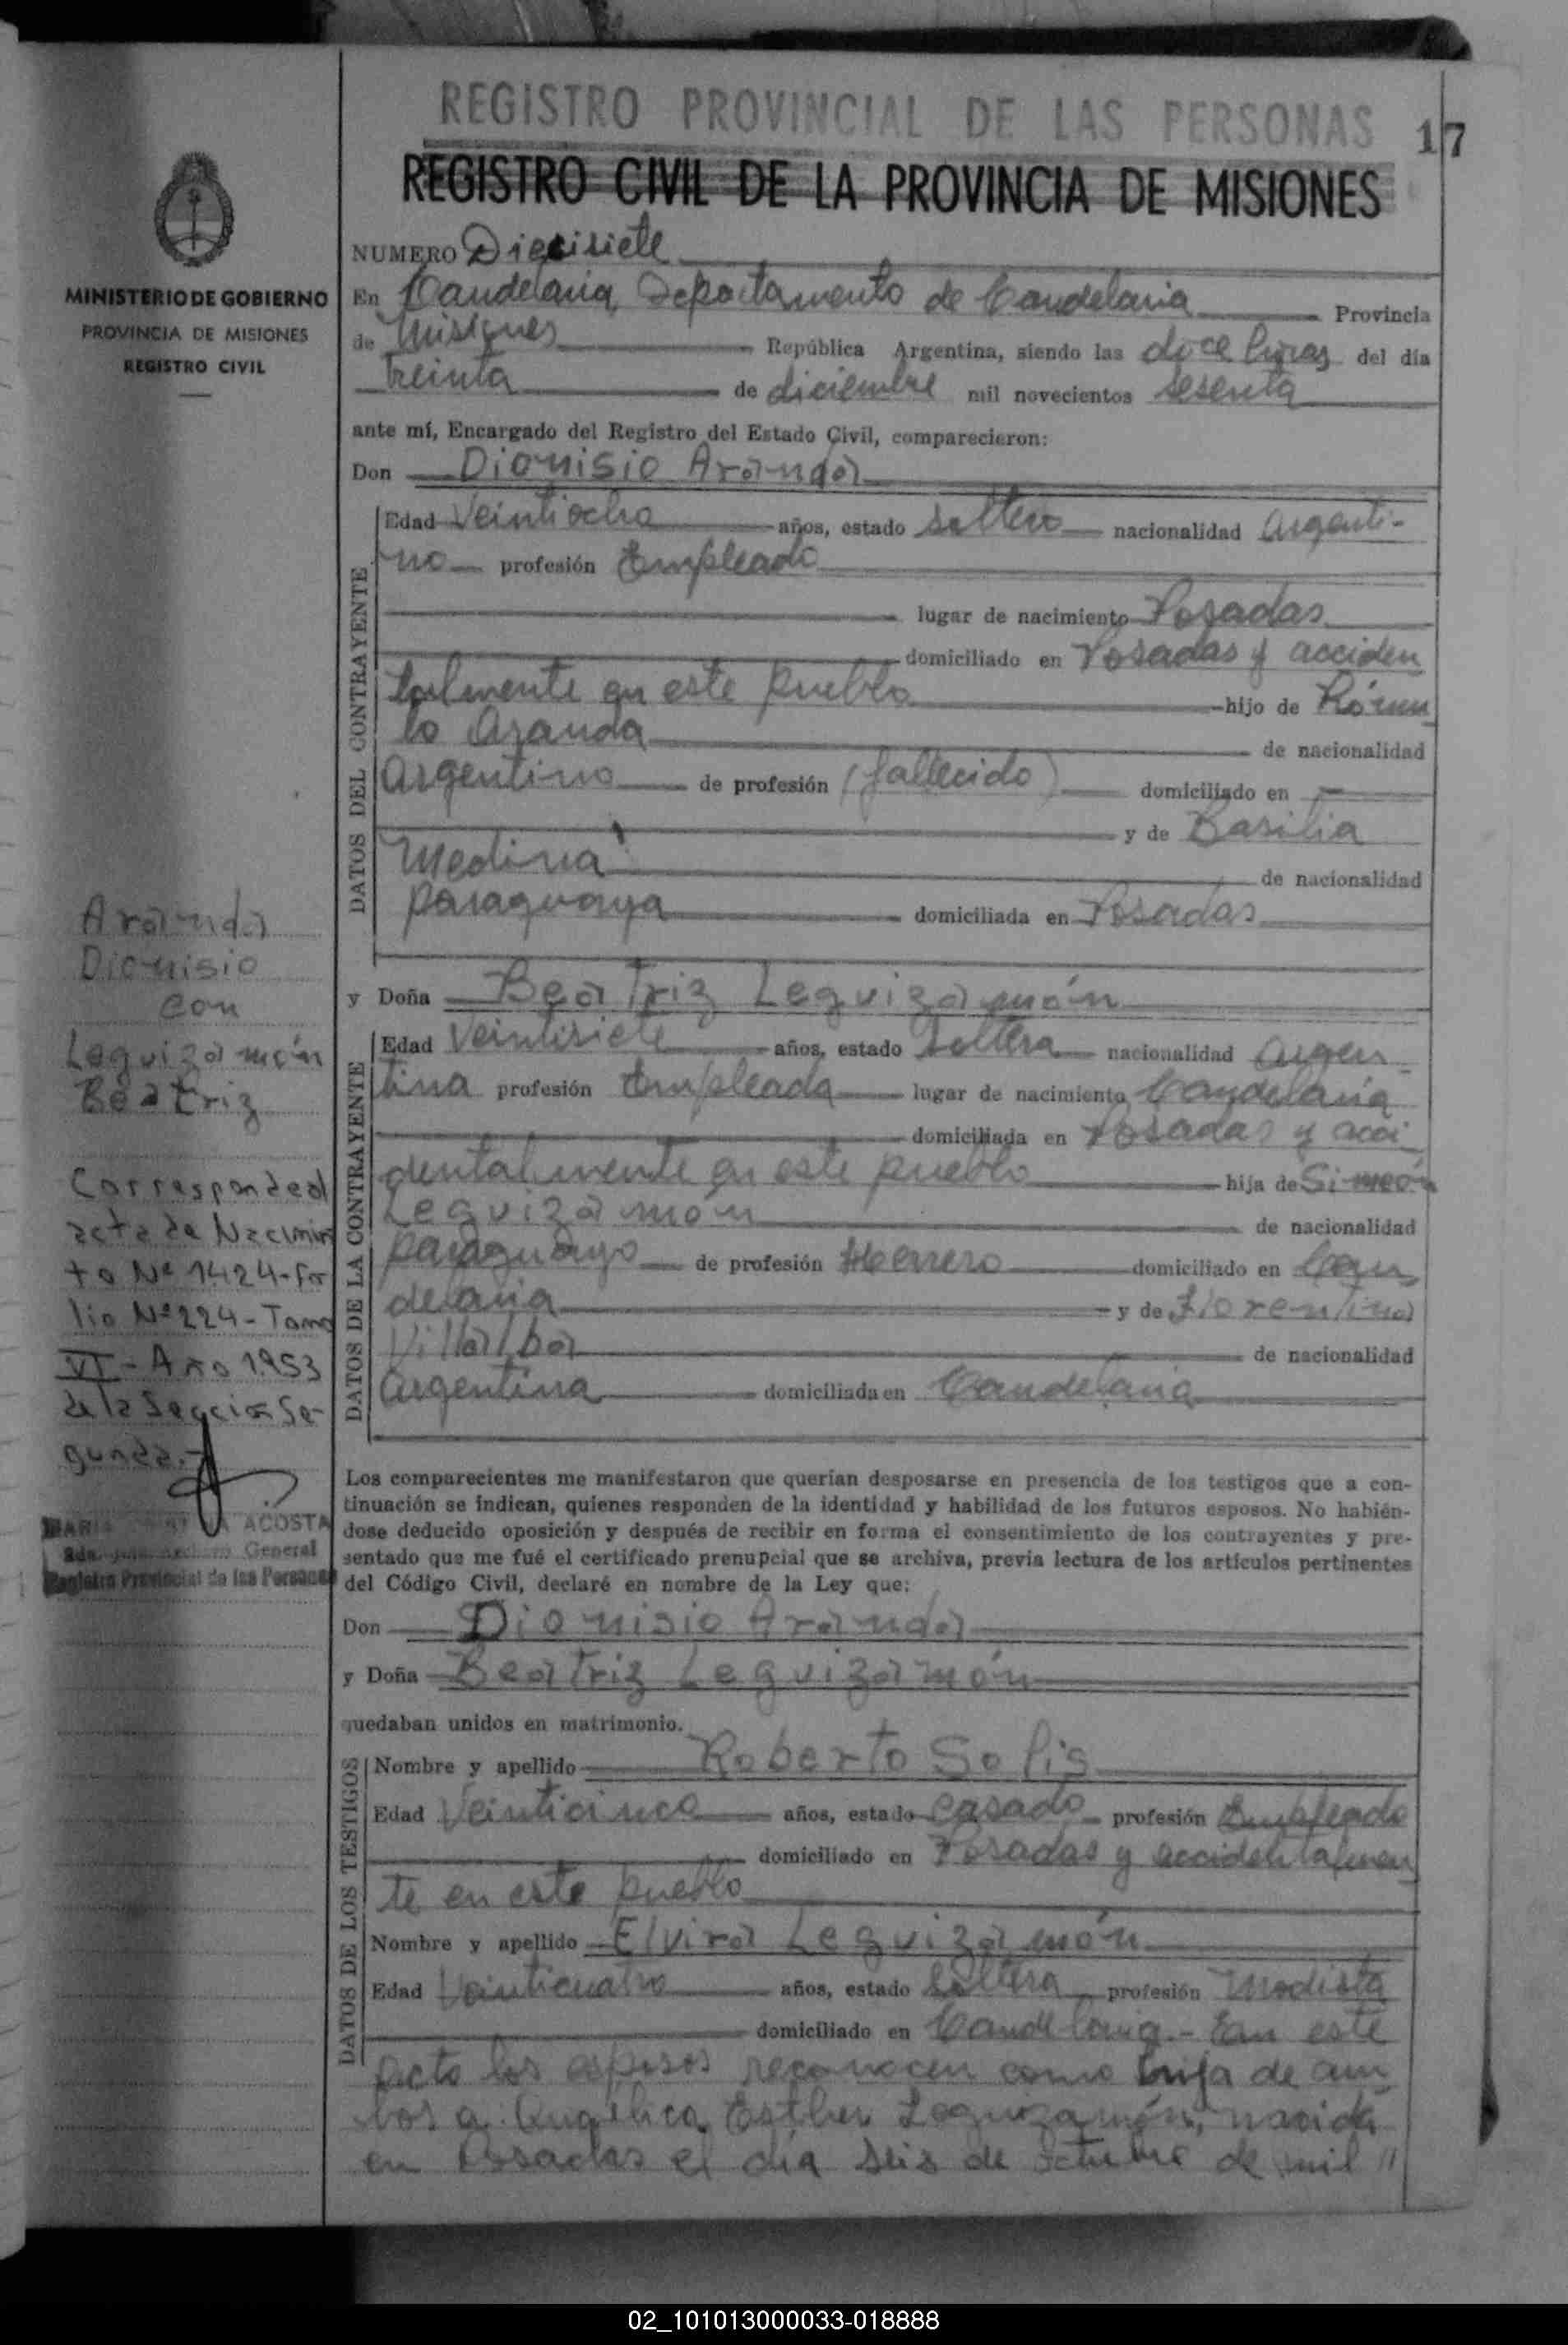 REGISTRO PROVINCIAL DE LAS PERSONAS
17
REGISTRO CIVIL DE LA PROVINCIA DE MISIONES
MINISTERIO DE GOBIERNO
PROVINCIA DE MISIONES
REGISTRO CIVIL
NUMERO Diecisiete
En Candelaria, Departamento de Candelaria Provincia
de Misiones República Argentina, siendo las doce horas del día
treinta de diciembre mil novecientos sesenta
ante mí, Encargado del Registro del Estado Civil, comparecieron:
Don Dionisio Aranda
DATOS DEL CONTRAYENTE
Edad Veintiocho años, estado soltero nacionalidad Argenti-
no profesión Empleado
lugar de nacimiento Posadas
domiciliado en Posadas y acciden
talmente en este pueblo hijo de Rómu
lo Aranda de nacionalidad
Argentino de profesión (fallecido) domiciliado en
y de Basilia
Medina de nacionalidad
paraguaya domiciliada en Posadas
y Doña Beatriz Leguizamón
DATOS DE LA CONTRAYENTE
Edad Veintisiete años, estado soltera nacionalidad Argen
tina profesión Empleada lugar de nacimiento Candelaria
domiciliada en Posadas y acci
dentalmente en este pueblo hija de Simeón
Leguizamón de nacionalidad
paraguayo de profesión Herrero domiciliado en Can
delaria y de Florentina
Villalba de nacionalidad
Argentina domiciliada en Candelaria
Los comparecientes me manifestaron que querían desposarse en presencia de los testigos que a con-
tinuación se indican, quienes responden de la identidad y habilidad de los futuros esposos. No habién-
dose deducido oposición y después de recibir en forma el consentimiento de los contrayentes y pre-
sentado que me fué el certificado prenupcial que se archiva, previa lectura de los artículos pertinentes
del Código Civil, declaré en nombre de la Ley que:
Don Dionisio Aranda
y Doña Beatriz Leguizamón
quedaban unidos en matrimonio.
DATOS DE LOS TESTIGOS
Nombre y apellido Roberto Solis
Edad Veinticinco años, estado casado profesión Empleado
domiciliado en Posadas y accidentalmen
te en este pueblo
Nombre y apellido Elvira Leguizamón
Edad Veinticuatro años, estado soltera profesión Modista
domiciliado en Candelaria.- En este
acto los esposos reconocen como hija de am
bos a Angélica Esther Leguizamón, nacida
en Posadas el día seis de Octubre de mil //
Aranda
Dionisio
con
Leguizamón
Beatriz
Corresponde al
acta de Nacimien
to Nº 1424-Fo
lio Nº 224-Tomo
VI - Año 1953
de la Sección Se-
gunda.-
MARIA ACOSTA
General
Registro Provincial de las Personas
02_101013000033-018888